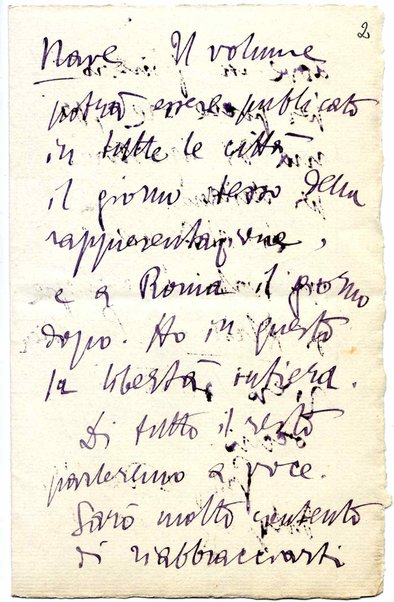 2
Nave. Il volume
potrà essere publicato
in tutte le città
il giorno stesso della
rappresentazione,
e a Roma il giorno
dopo. Ho in questo
la libertà intiera.
Di tutto il resto
parleremo a voce.
Sarò molto contento
di riabbracciarti